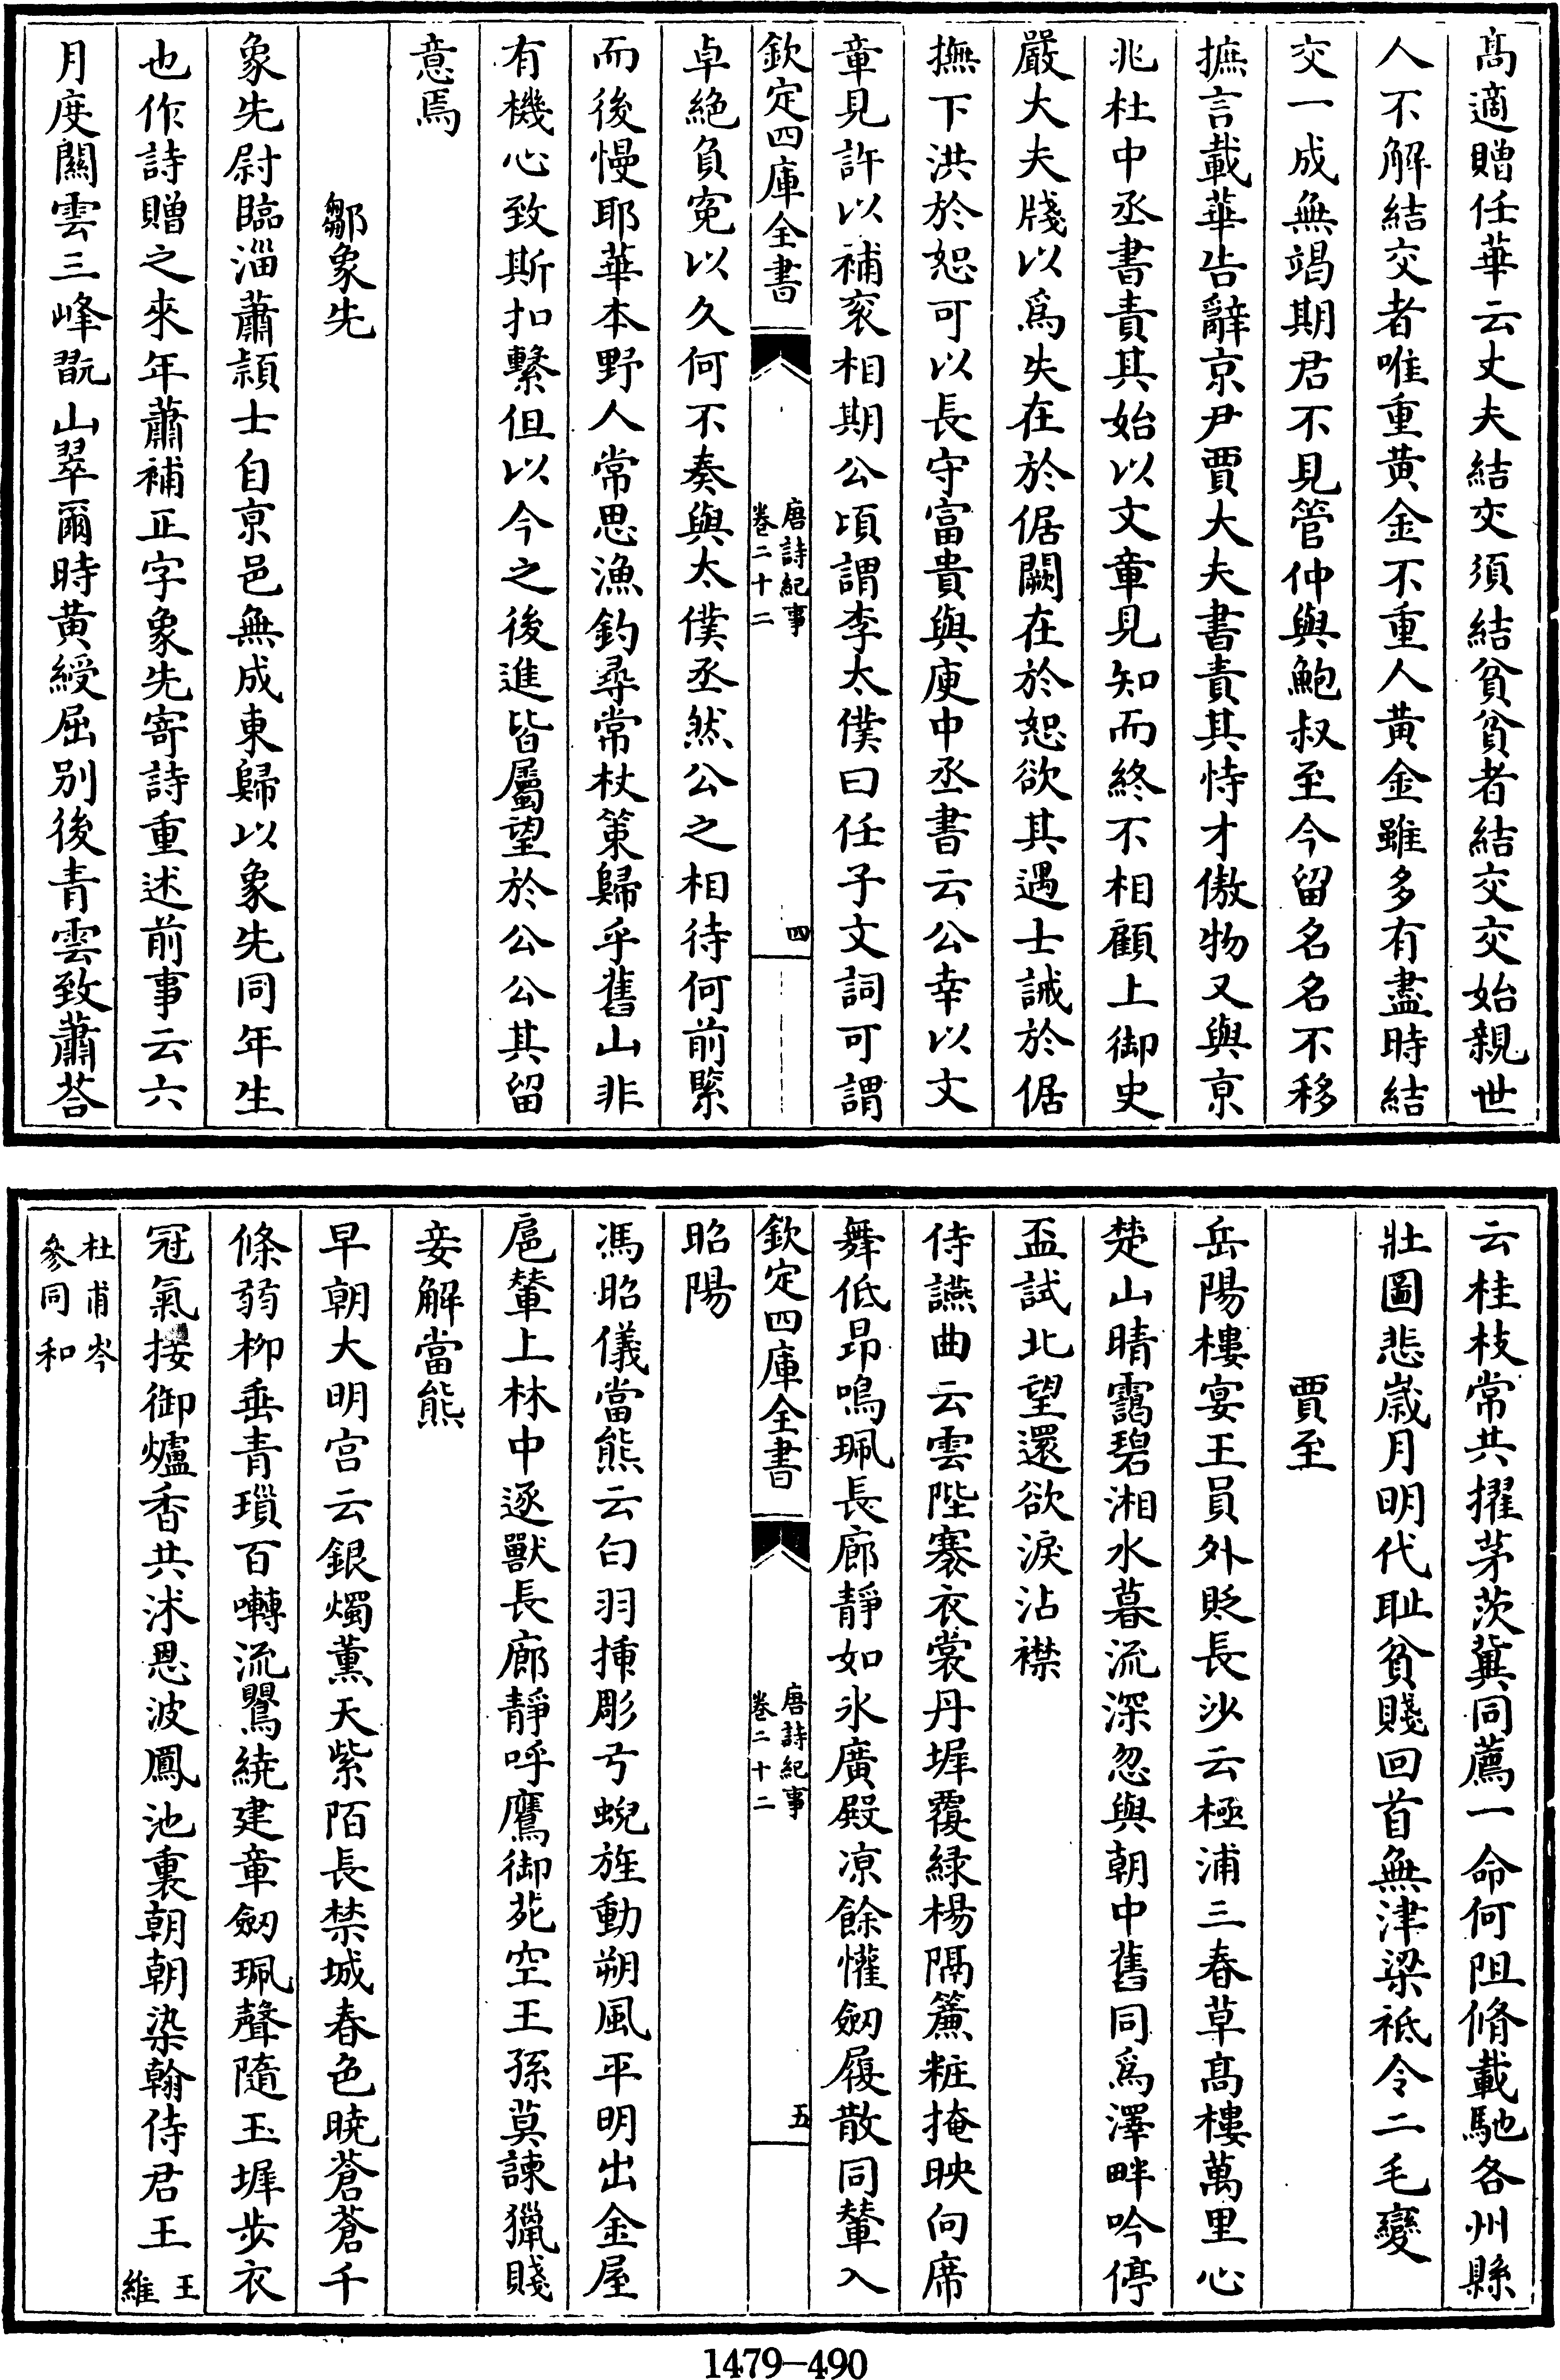 高適贈任華云丈夫結交須結貧貧者結交交始親世
人不解結交者唯重黄金不重人黄金雖多有盡時結
交一成無竭期君不見管仲與鮑叔至今留名名不移
摭言載華告辭京尹賈大夫書責其恃才傲物又與京
兆杜中丞書責其始以文章見知而終不相顧上御史
嚴大夫牋以爲失在於倨闕在於恕欲其遇士誡於倨
撫下洪於恕可以長守富貴與庾中丞書云公幸以文
章見許以補衮相期公頃謂李太僕曰任子文詞可謂
欽定四庫全書
唐詩紀事
卷二十二
四
卓絶負寃以久何不奏與太僕丞然公之相待何前緊
而後慢耶華本野人常思漁釣尋常杖策歸乎舊山非
有機心致斯扣繫但以今之後進皆屬望於公公其留
意焉
鄒象先
象先尉臨淄蕭頴士自京邑無成東歸以象先同年生
也作詩贈之來年蕭補正字象先寄詩重述前事云六
月度關雲三峰翫山翠爾時黄綬屈别後青雲致蕭荅
云桂枝常共擢茅茨冀同薦一命何阻脩載馳各州縣
壯圖悲嵗月明代耻貧賤回首無津梁祗令二毛變
賈至
岳陽樓宴王員外貶長沙云極浦三春草高樓萬里心
楚山晴靄碧湘水暮流深忽與朝中舊同爲澤畔吟停
盃試北望還欲淚沾襟
侍讌曲云雲陛褰衣裳丹墀覆緑楊隔簾粧掩映向席
舞低昂鳴珮長廊靜如氷廣殿凉餘懽劒履散同輦入
欽定四庫全書
唐詩紀事
卷二十二
五
昭陽
馮昭儀當熊云白羽揷彫弓蜺旌動朔風平明出金屋
扈輦上林中逐獸長廊靜呼鷹御苑空王孫莫諫獵賤
妾解當熊
早朝大明宫云銀燭薰天紫陌長禁城春色曉蒼蒼千
條弱柳垂青瑣百囀流鸎繞建章劒珮聲隨玉墀步衣
冠氣接御爐香共沭恩波鳳池裏朝朝染翰侍君王王
維
杜甫岑
參同和
1479-490